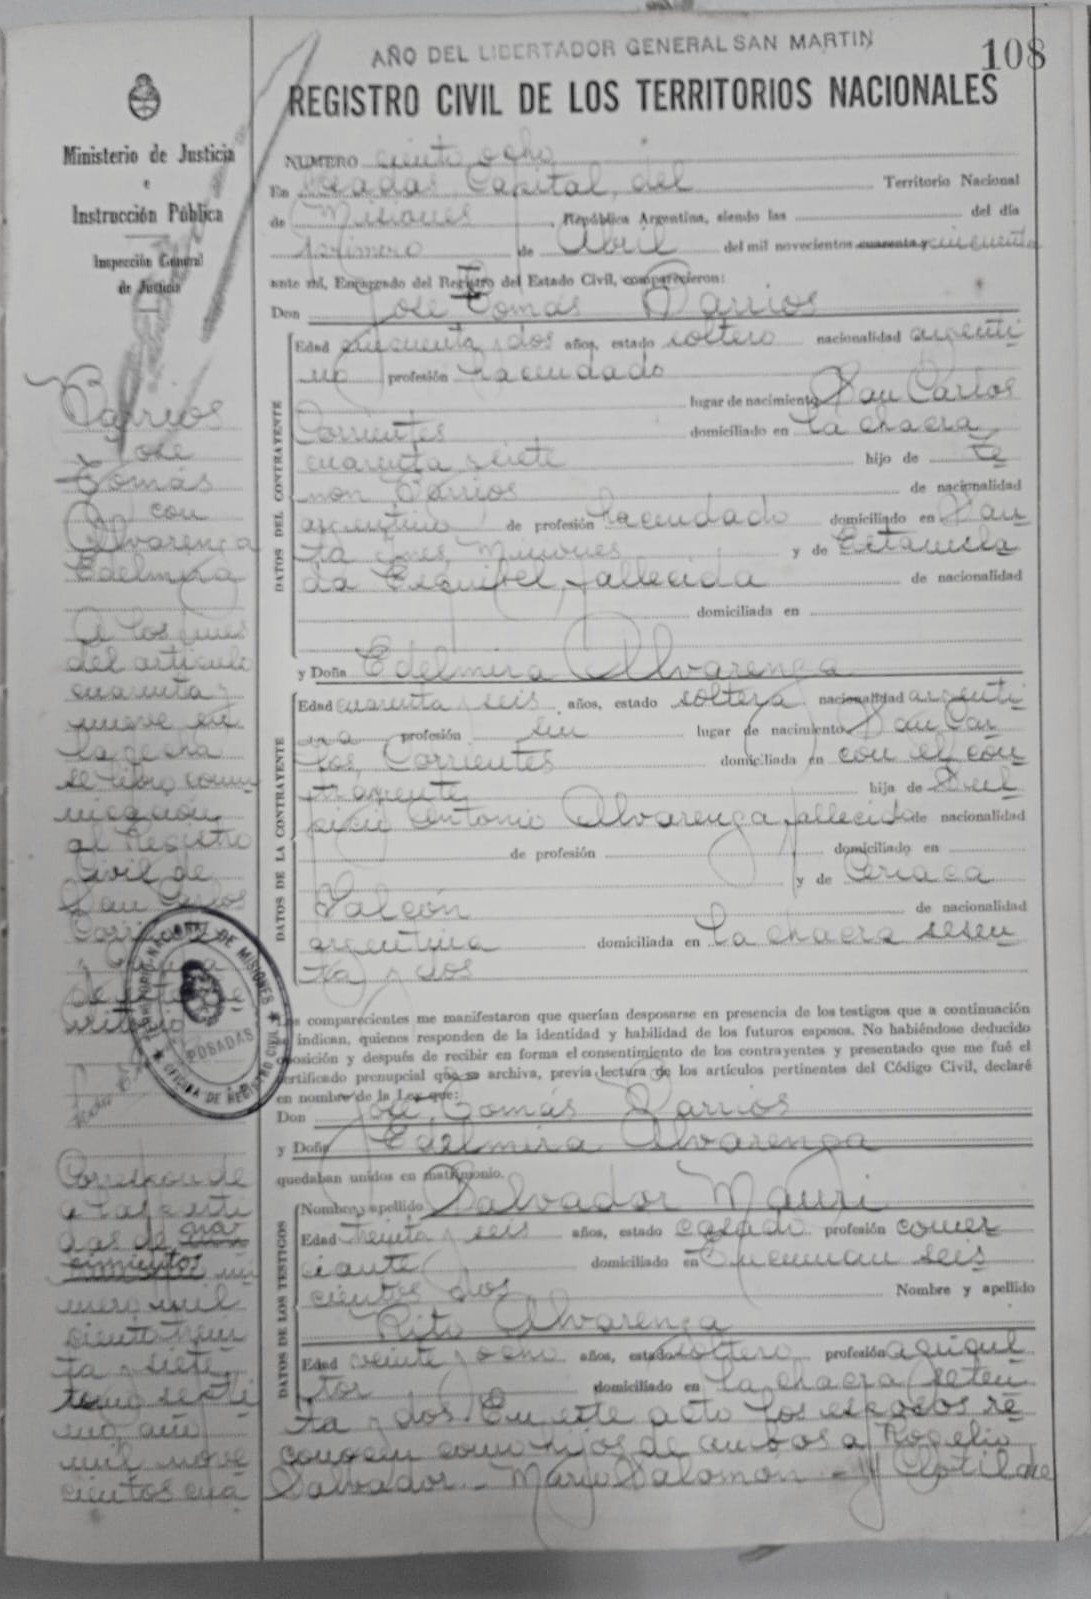 AÑO DEL LIBERTADOR GENERAL SAN MARTIN
108
REGISTRO CIVIL DE LOS TERRITORIOS NACIONALES
Ministerio de Justicia
e
Instrucción Pública
Inspección General
de Justicia
Barrios
José
Tomás
con
Alvarenga
Edelmira
A los fines
del artículo
cuarenta y
nueve en
la fecha
se libró comu
nicación
al Registro
Civil de
San Carlos
TERRITORIO NACIONAL DE MISIONES
POSADAS
OFICINA DE REGISTRO CIVIL
Correspon de
a las parti
das de
cimientos nú
mero mil
ciento trein
ta y siete
tomo sépti
mo, año
mil nove
cientos cua
NUMERO ciento ocho
En Posadas, Capital, del Territorio Nacional
de Misiones, República Argentina, siendo las del día
primero de Abril del mil novecientos cuarenta y cincuenta
ante mí, Encargado del Registro del Estado Civil, comparecieron:
Don José Tomás Barrios
DATOS DEL CONTRAYENTE
Edad cincuenta y dos años, estado soltero nacionalidad argenti
no profesión hacendado
lugar de nacimiento San Carlos
Corrientes domiciliado en la chacra
cuarenta y siete hijo de Ze
non Barrios de nacionalidad
argentina de profesión hacendado domiciliado en San
ta Ines, Misiones y de Estanisla
da Esquibel, fallecida de nacionalidad
domiciliada en
y Doña Edelmira Alvarenga
DATOS DE LA CONTRAYENTE
Edad cuarenta y seis años, estado soltera nacionalidad argenti
na profesión sin lugar de nacimiento San Car
los, Corrientes domiciliada en con el con
trayente hija de Sul
picio Antonio Alvarenga, fallecido de nacionalidad
de profesión domiciliado en
y de Ciriaca
Falcón de nacionalidad
argentina domiciliada en la chacra sesen
ta y dos
Los comparecientes me manifestaron que querían desposarse en presencia de los testigos que a continuación
se indican, quienes responden de la identidad y habilidad de los futuros esposos. No habiéndose deducido
oposición y después de recibir en forma el consentimiento de los contrayentes y presentado que me fué el
certificado prenupcial que se archiva, previa lectura de los artículos pertinentes del Código Civil, declaré
en nombre de la Ley que:
Don José Tomás Barrios
y Doña Edelmira Alvarenga
quedaban unidos en matrimonio.
DATOS DE LOS TESTIGOS
Nombre y apellido Salvador Mauri
Edad treinta y seis años, estado casado profesión comer
ciante domiciliado en Tucuman seis
cientos dos Nombre y apellido
Rito Alvarenga
Edad veinte y ocho años, estado soltero profesión agricul
tor domiciliado en la chacra seten
ta y dos. En este acto los esposos re
conocen como hijos de ambos a Rogelio
Salvador - Mario Salomón - y Clotilde